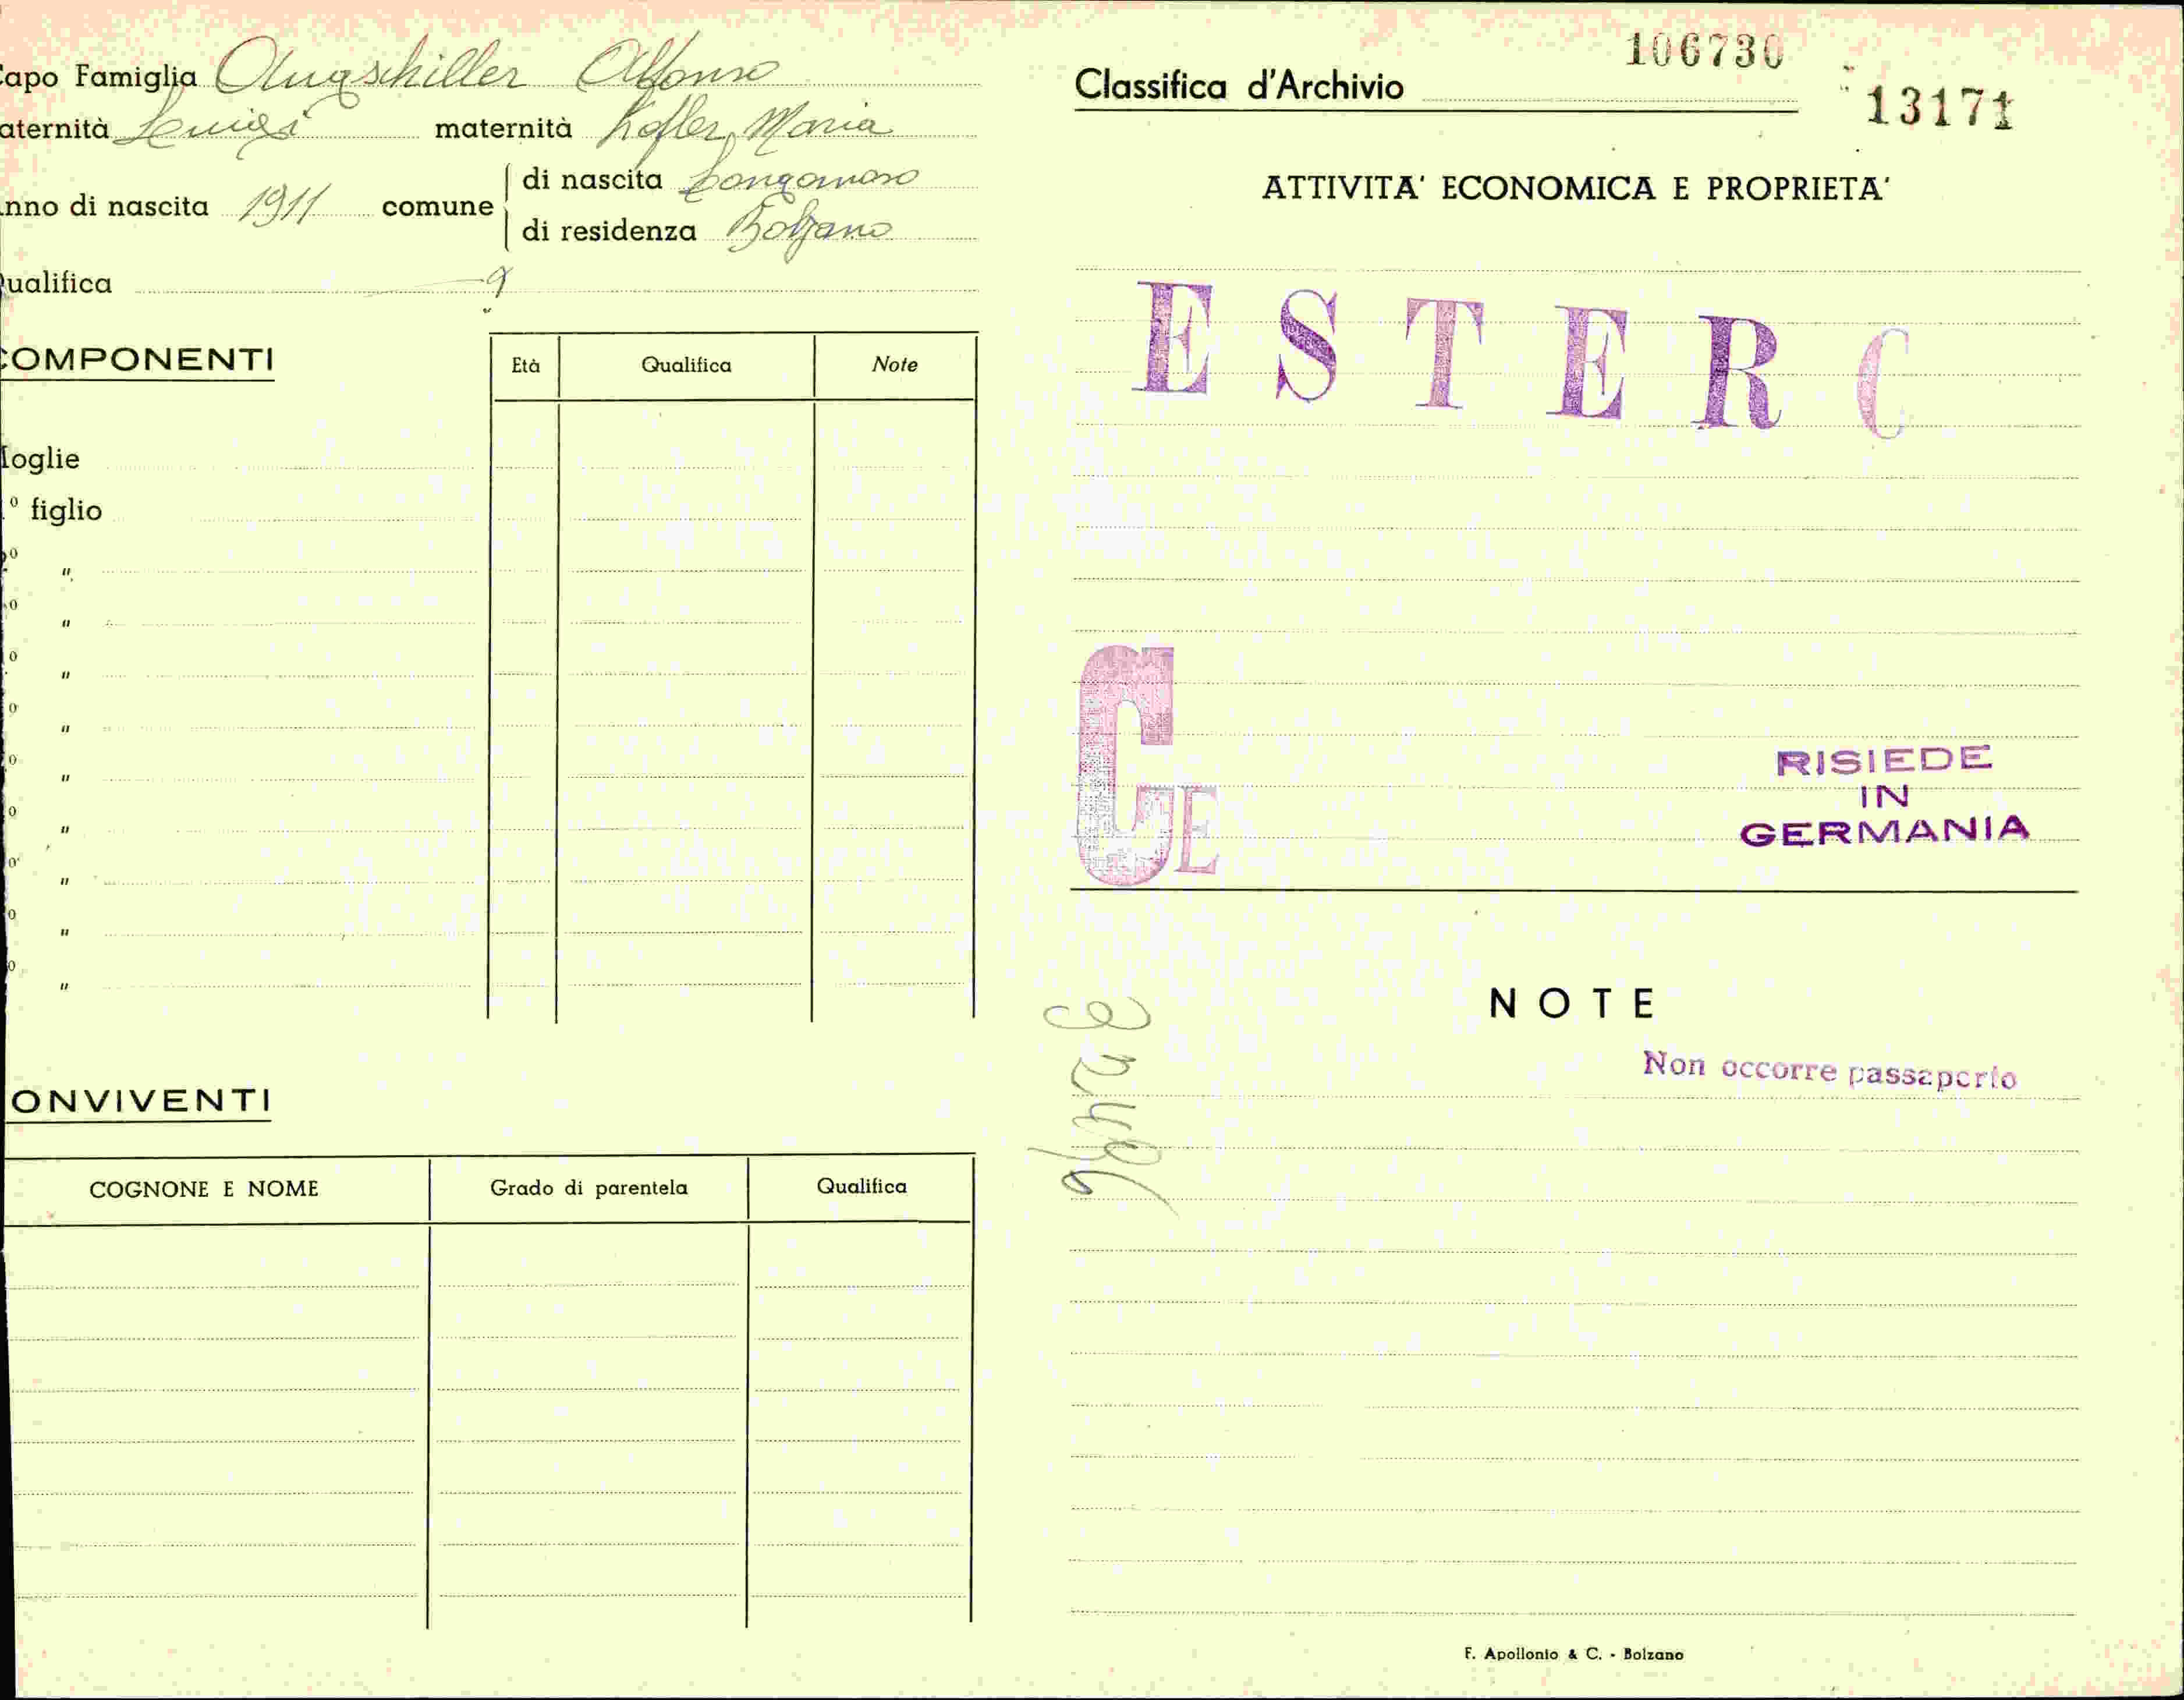 apo Famiglia Augschiller Alfonso
aternità Luigi maternità Kofler Maria
nno di nascita 1911 comune di nascita Longomoso
di residenza Bolzano
ualifica
COMPONENTI Età Qualifica Note
oglie
º figlio
"
"
"
"
"
"
"
"
"
ONVIVENTI
COGNONE E NOME Grado di parentela Qualifica
Classifica d'Archivio 106730
13171
ATTIVITA' ECONOMICA E PROPRIETA'
ESTERO
GE
RISIEDE
IN
GERMANIA
NOTE
Non occorre passaporto
F. Apollonio & C. - Bolzano